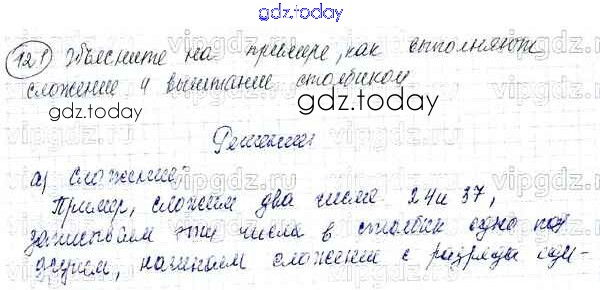 gdz.today
121 Объясните на примере, как выполняют
сложение и вычитание столбиком
gdz.today
Решение:
а) сложение:
Пример, сложим два числа 24 и 37,
записываем эти числа в столбик одно под
другим, начинаем сложение с разряда еди-